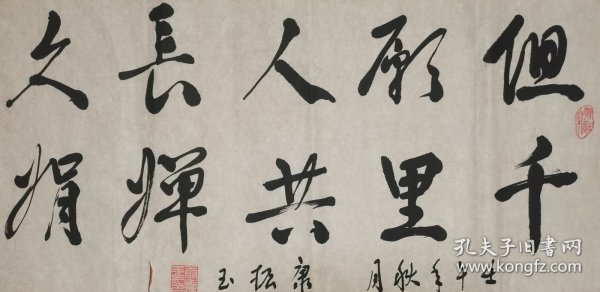 但願人長久
千里共嬋娟
壬午年秋月
孔夫子旧书网
www.kongfz.com